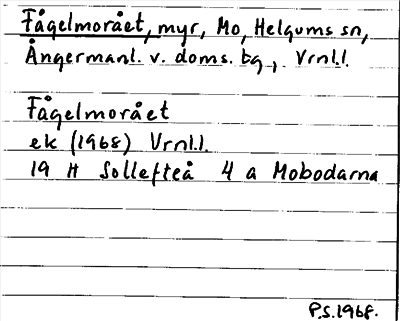 Fågelmorået, myr, Mo, Helgums sn,
Ångermanl. v. doms. tg., Vrnl.l.
Fågelmorået
ek (1968) Vrnl.l.
19 H Sollefteå 4 a Mobodarna
P.S. 1968.